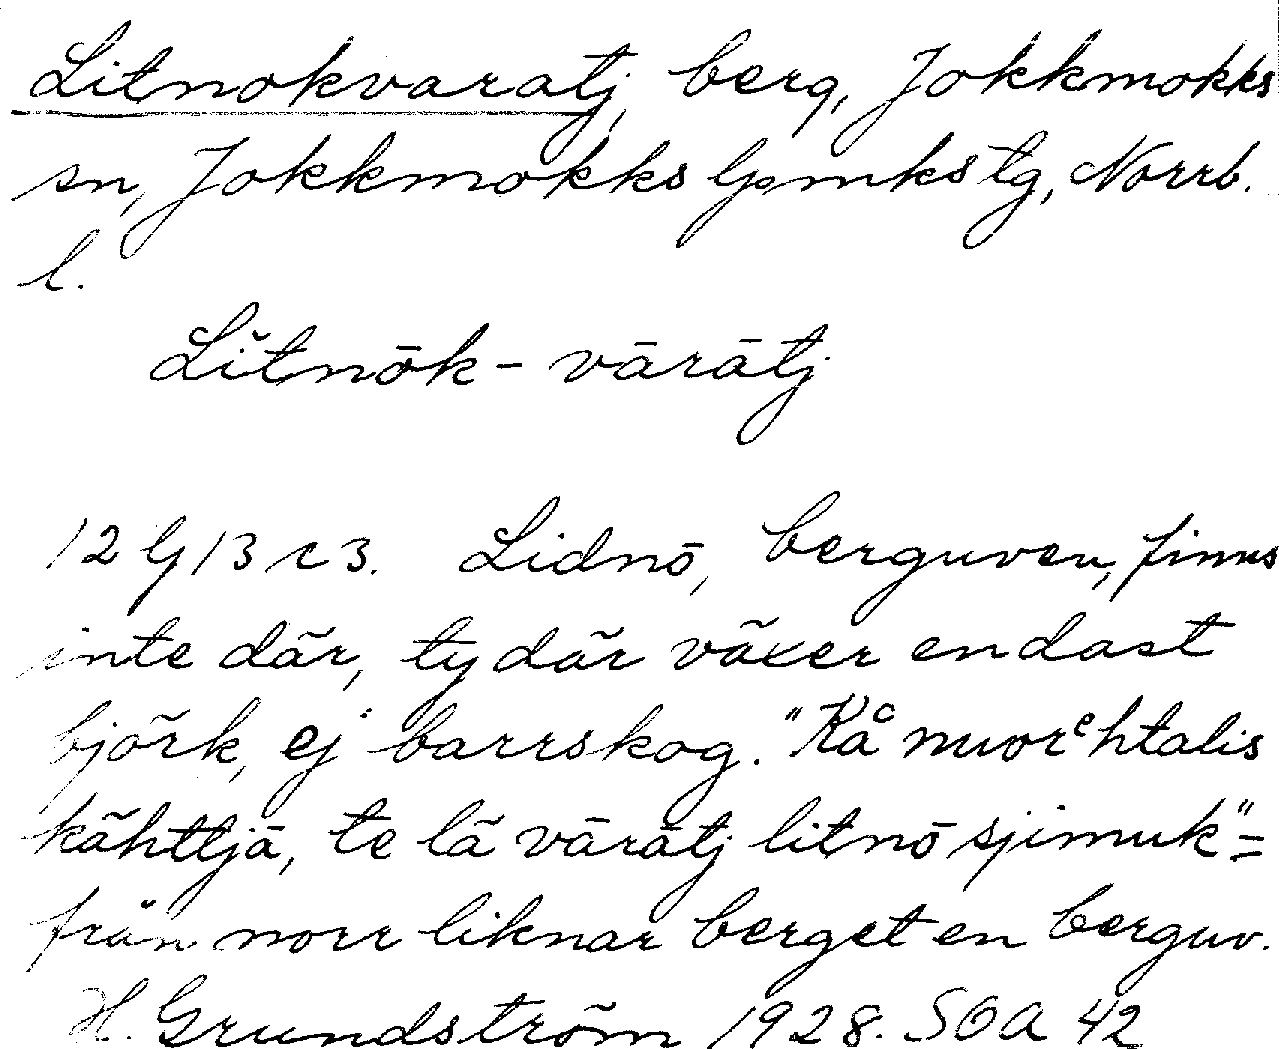 Litnokvaratj, berg, Jokkmokks
sn, Jokkmokks lpmks tg, Norrb.
l.
Lĭtnōk - vāràtj
12 G 13 c 3. Lidnō, berguven, finns
inte där, ty där växer endast
björk, ej barrskog. "Kå nuorᵉhtalis
kähttjā, te lä vārātj litnō sjimuk" =
från norr liknar berget en berguv.
H. Grundström 1928. SOA 42